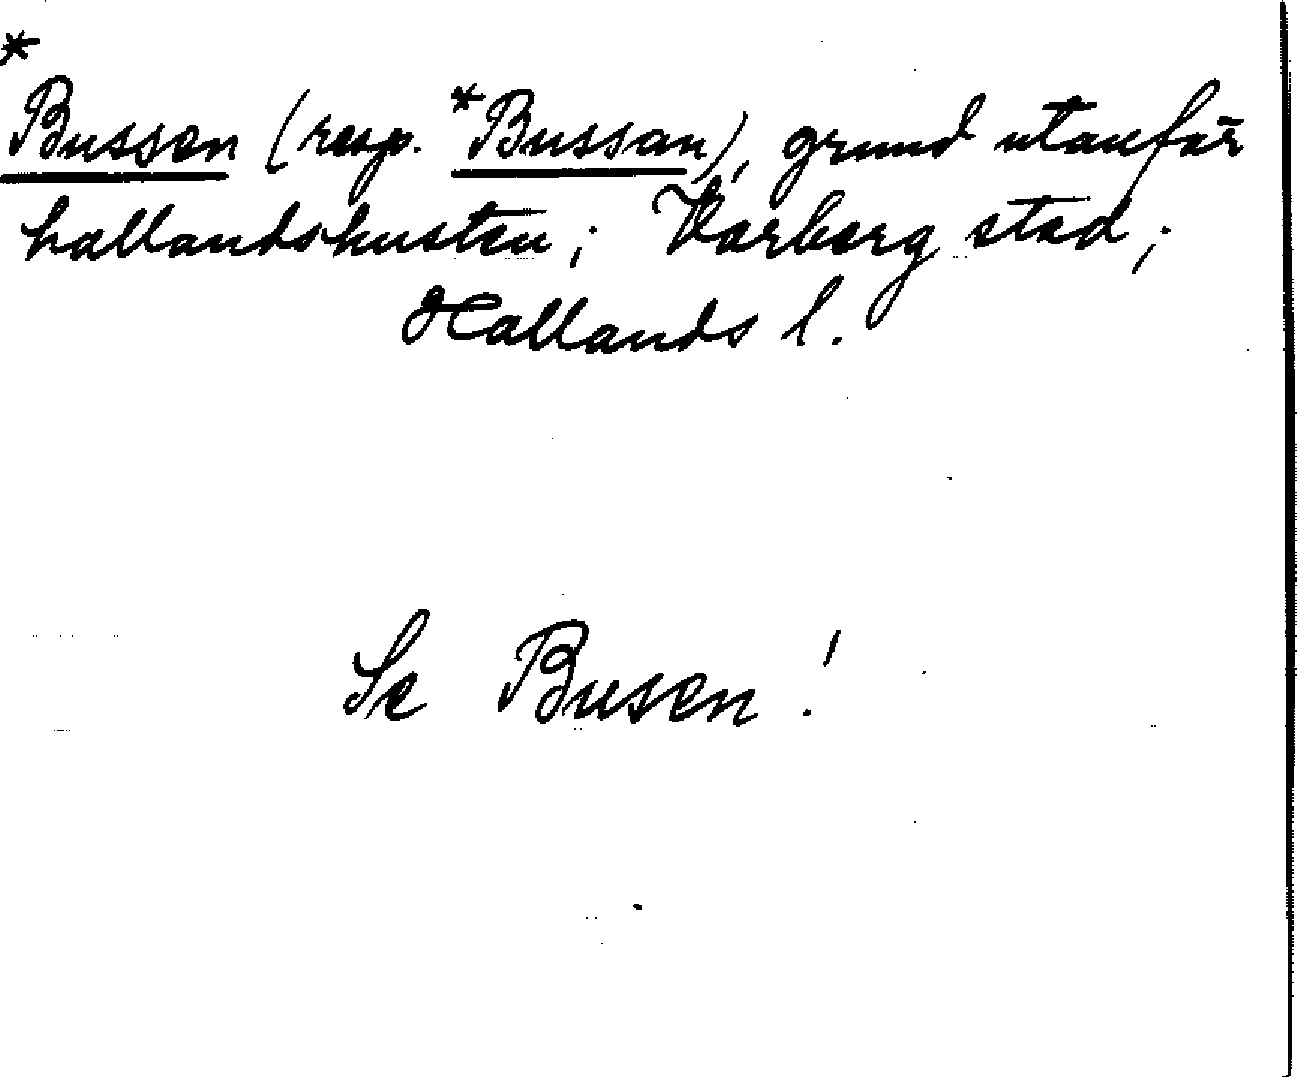 *Bussen (resp. *Bussan), grund utanför
hallandskusten; Varberg stad;
Hallands l.
Se Busen!